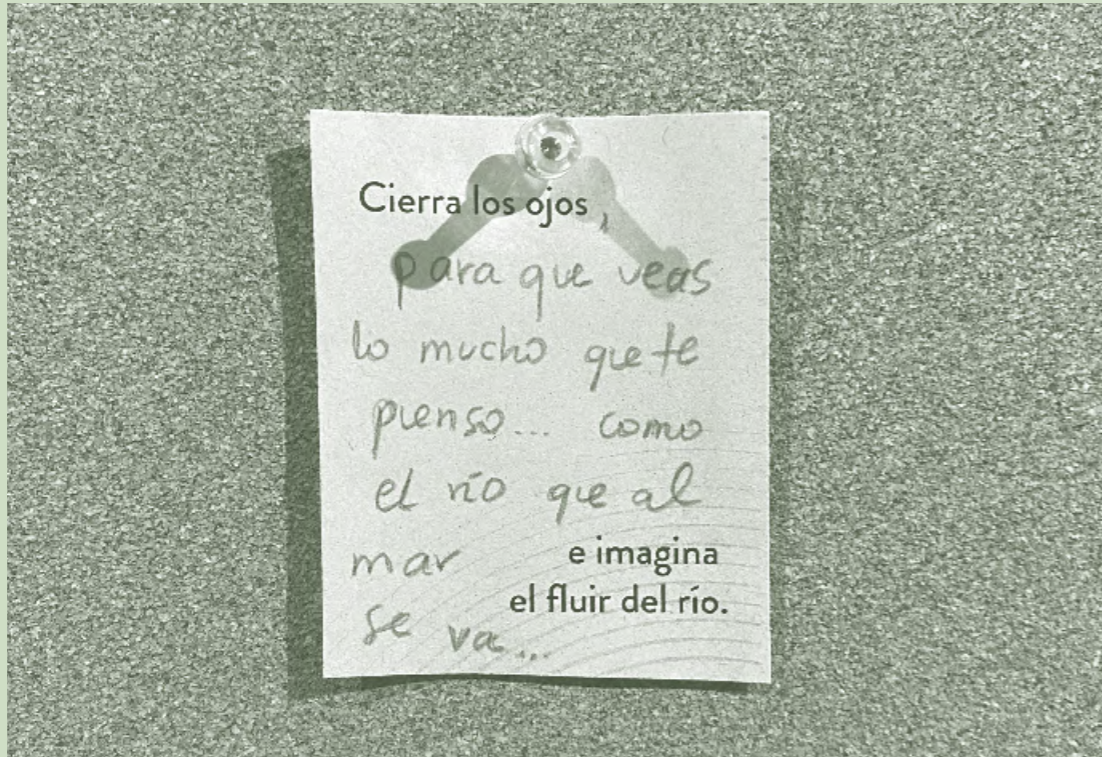 Cierra los ojos,
para que veas
lo mucho que te
pienso... como
el río que al
mar
e imagina
el fluir del río.
se va...